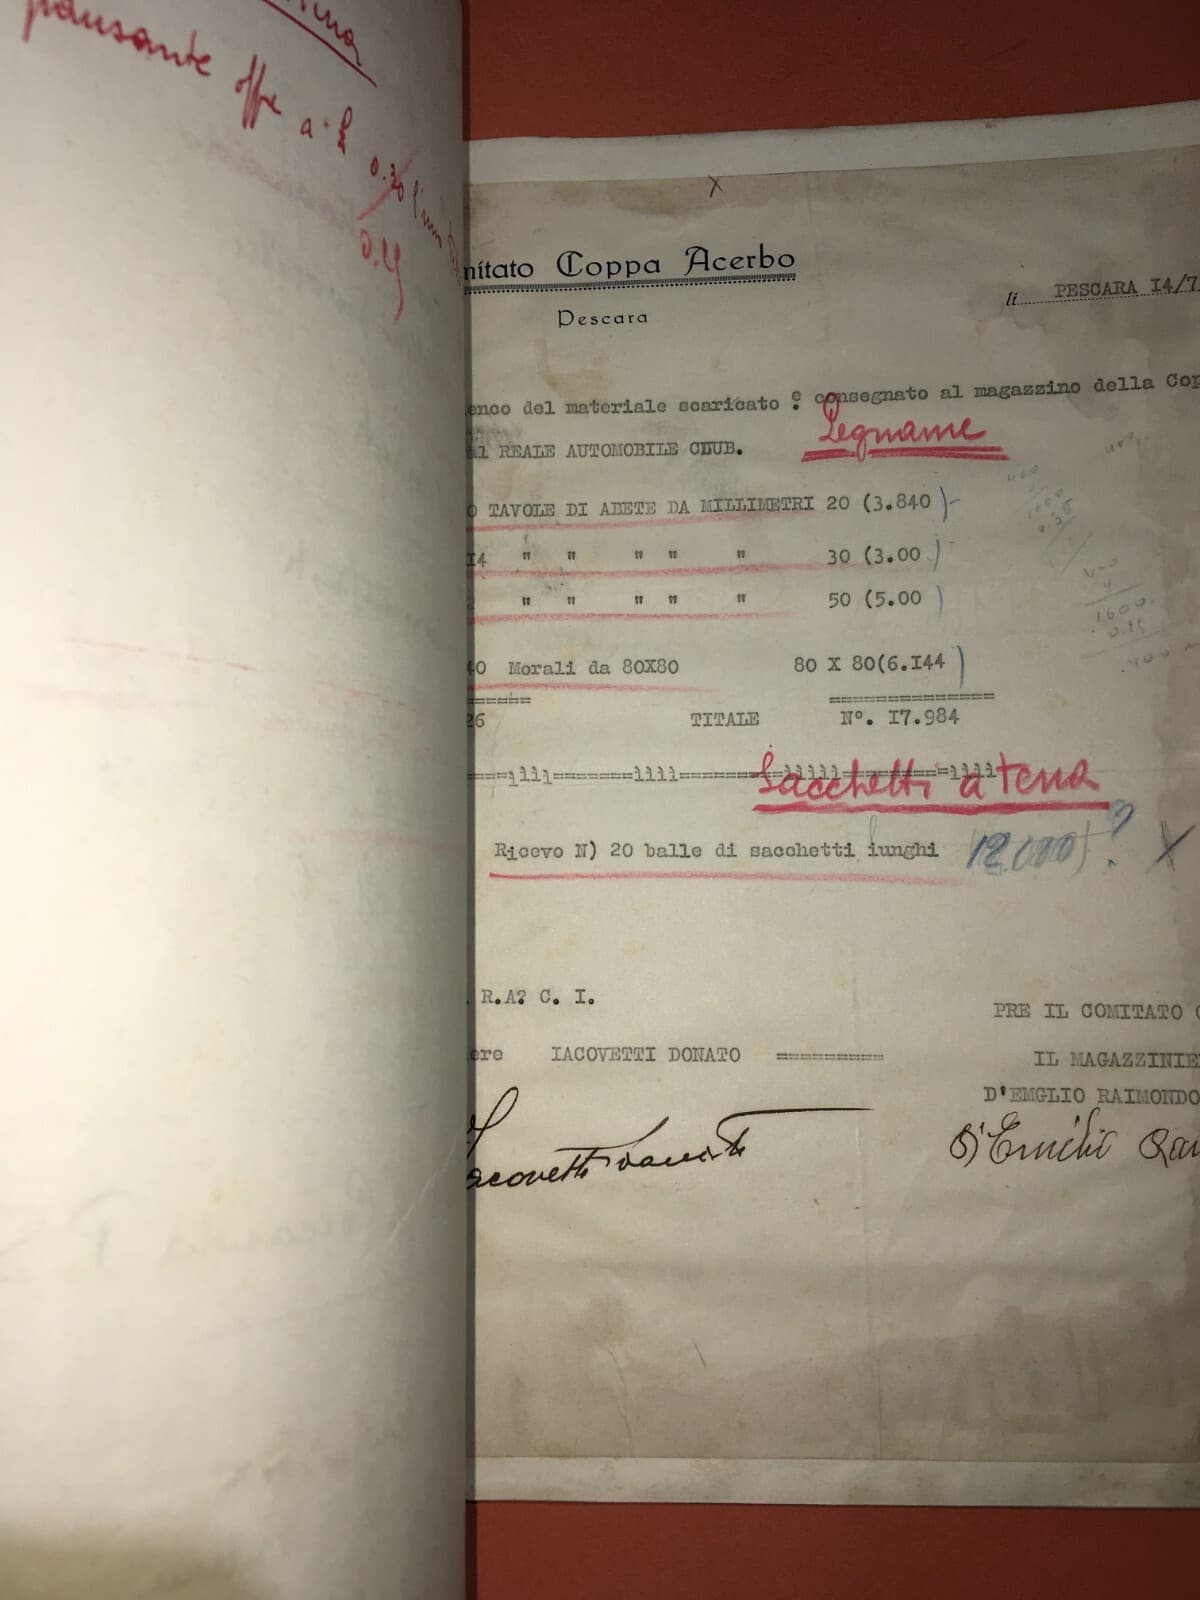 pausante offre a £ 0.30 l'uno
mitato Coppa Acerbo
Pescara
li PESCARA I4/7
enco del materiale scaricato e consegnato al magazzino della Cop
al REALE AUTOMOBILE CLUB.
Legname
0 TAVOLE DI ABETE DA MILLIMETRI 20 (3.840 )-
I4 " " " " " 30 (3.00 )
" " " " " 50 (5.00 )
40 Morali da 80X80 80 X 80(6.I44 )
====== ==============
26 TITALE N°. I7.984
====lll=======llll=======lllll========llll
Sacchetti a terra
Ricevo N) 20 balle di sacchetti lunghi (12.000)? X
. R.A? C. I.
PRE IL COMITATO C
ere IACOVETTI DONATO =========
IL MAGAZZINIE
D'EMGLIO RAIMONDO
Iacovetti Donato
D'Emilio Rai